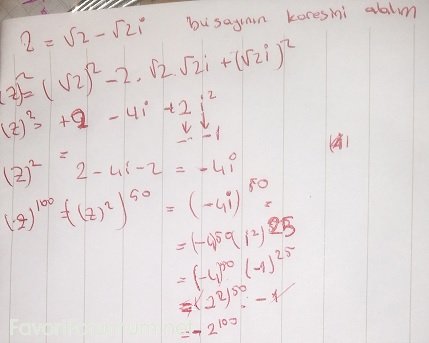 z = √2 - √2i bu sayının karesini alalım
(z)² = (√2)² - 2 · √2 · √2i + (√2i)²
(z)² = +2 - 4i + 2 i²
-1
(z)² = 2 - 4i - 2 = -4i
(z)¹⁰⁰ = ((z)²)⁵⁰ = (-4i)⁵⁰ =
= (-4)⁵⁰ (i²)²⁵
= (-4)⁵⁰ · (-1)²⁵
= (2²)⁵⁰ · -1
= -2¹⁰⁰